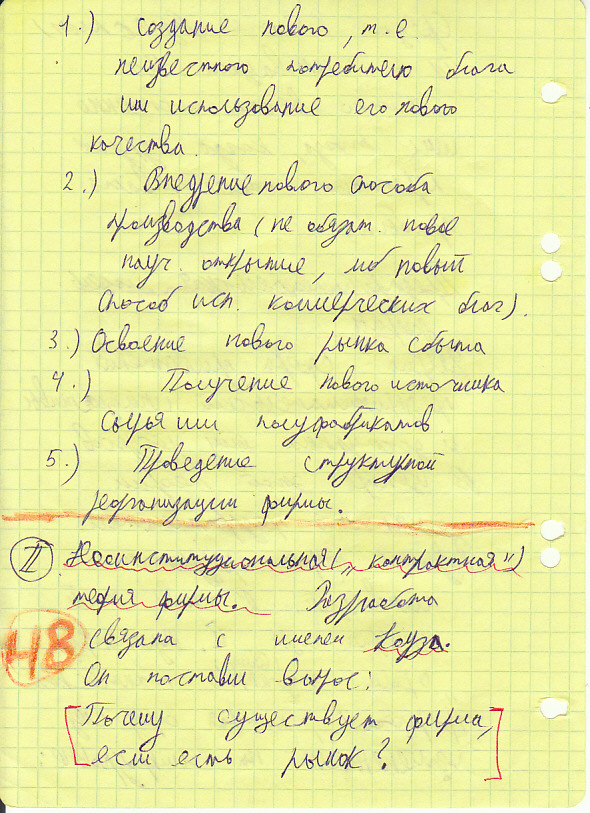 1.) создание нового, т.е.
неизвестного потребителю блага
или использование его нового
качества.
2.) Внедрение нового способа
производства (не обязат. новое
науч. открытие, мб новый
способ исп. коммерческих благ).
3.) Освоение нового рынка сбыта
4.) Получение нового источника
сырья или полуфабрикатов
5.) Проведение структурной
реорганизации фирмы.
II Неоинституциональная („контрактная")
теория фирмы. Разработа
связана с именем Коуза.
48
Он поставил вопрос:
[Почему существует фирма,
если есть рынок?]